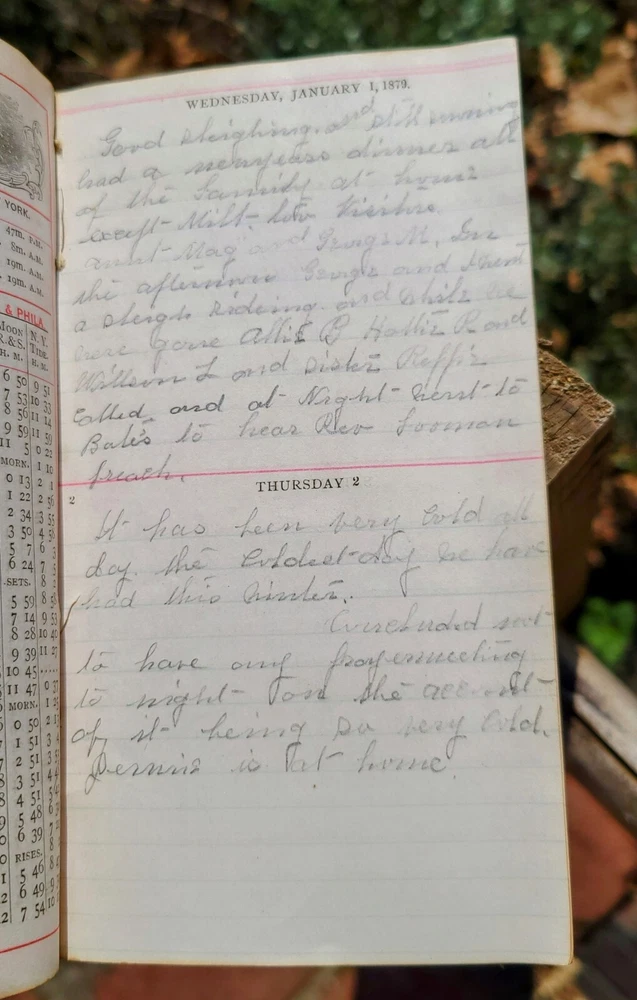 YORK.
47m. P.M.
8m. A.M.
19m. A.M.
19m. A.M.
& PHILA.
MOON N.Y.
R.&S. TIDE.
H. M. H. M.
6 50 9 51
7 53 10 33
8 56 11 14
9 59 11 59
11 5 0 22
MORN. 1 10
0 13 2
1 22 2 56
2 34 3 55
3 50 4 58
5 7 6
6 24 7
SETS. 8
5 59 8
7 14 9 53
8 28 10 40
9 39 11 27
10 45 .....
11 47 0 37
MORN. 1 25
0 50 2
1 51 3
2 51 3
3 51 4
4 51
5 48 6
6 39 7
RISES. 8
5 46 8
6 49 9
7 54 10
WEDNESDAY, JANUARY 1, 1879.
Good sleighing, and still snowing
had a newyears dinner all
of the family at home
except Milt. two Visitors.
aunt Mag and George M. In
the afternoon George and I went
a sleigh rideing and while we
were gone Allie B Hattie R and
Willson L and sister
called and at Night went to
Bales to hear Rev
preach.
THURSDAY 2
2
It has been very cold all
day the coldest day we have
had this winter.
Concluded not
to have our prayermeeting
to night on the account
of it being so very cold.
Jennie is at home.